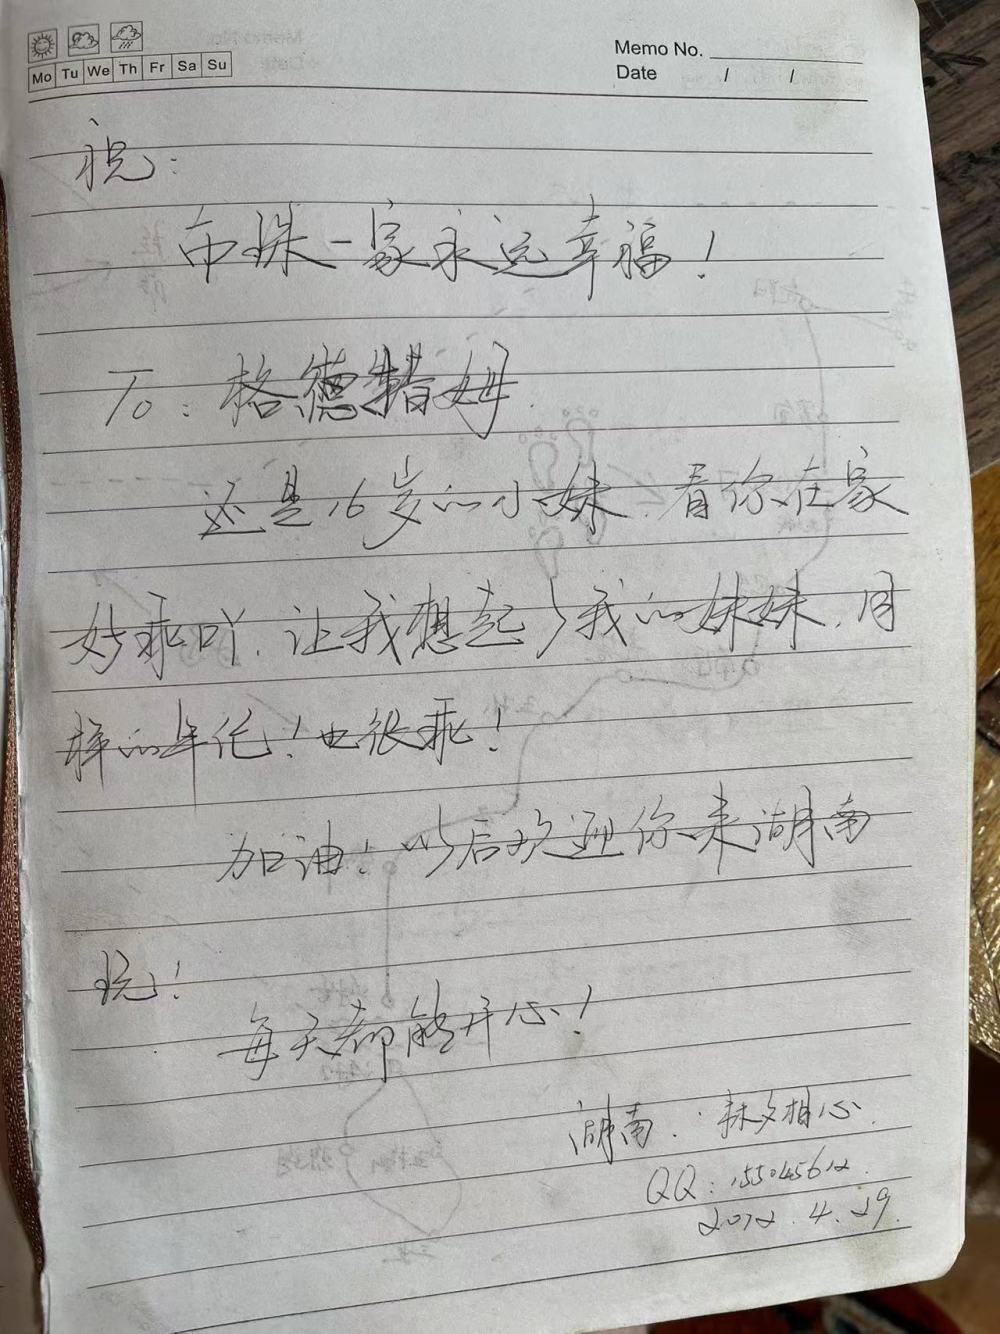 Mo Tu We Th Fr Sa Su
Memo No.
Date / /
祝:
布珠一家永远幸福!
To: 格德措姆
还是16岁的小妹.看你在家
好乖吖.让我想起了我的妹妹.同
样的年纪!也很乖!
加油!以后欢迎你来湖南
玩!
每天都能开心!
湖南.
QQ:155045612
2012.4.29.